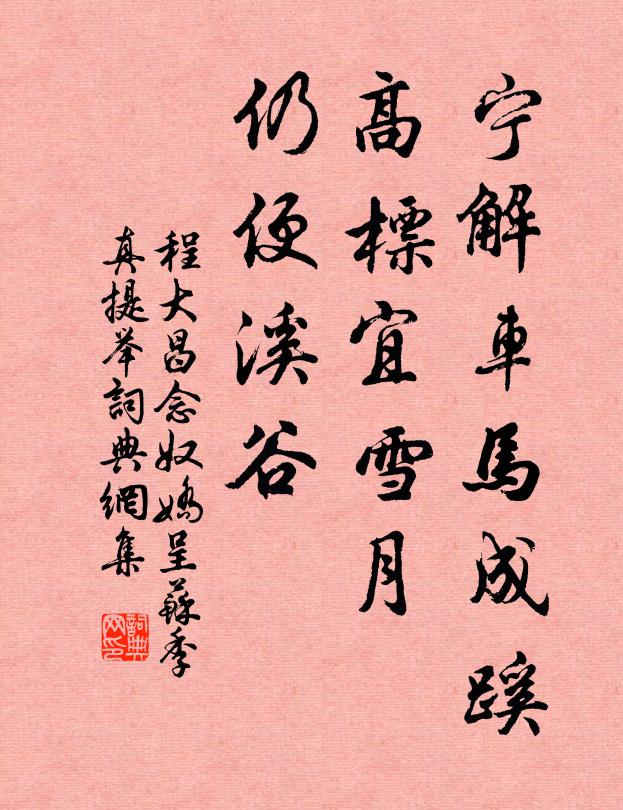 宁解車馬成蹊
高標宜雪月
仍便溪谷
程大昌念奴嬌呈蘇季
真提举詞典網集
詞典
网印